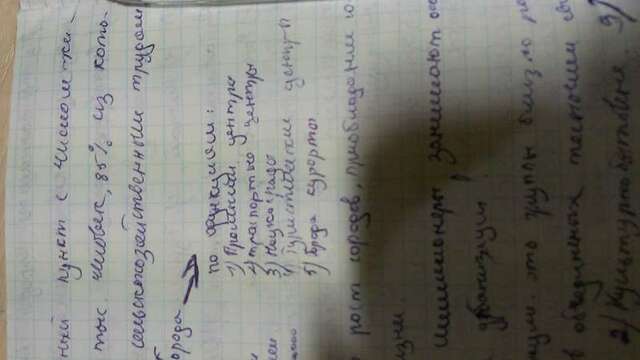 ный пункт с числом жи-
тыс. человек, 85% из кото-
сельскохозяйственным трудом
города
по функциям:
1) Промышл центры
2) транспортные центры
3) Наукограды
4) Туристические центры
5) Города курорты
рост городов, приобладание го
изни.
миллионеры, занимают ос
урбанизации!
это группы близко ра
объединеных тесными св
2) Культурнобытовые. 3)